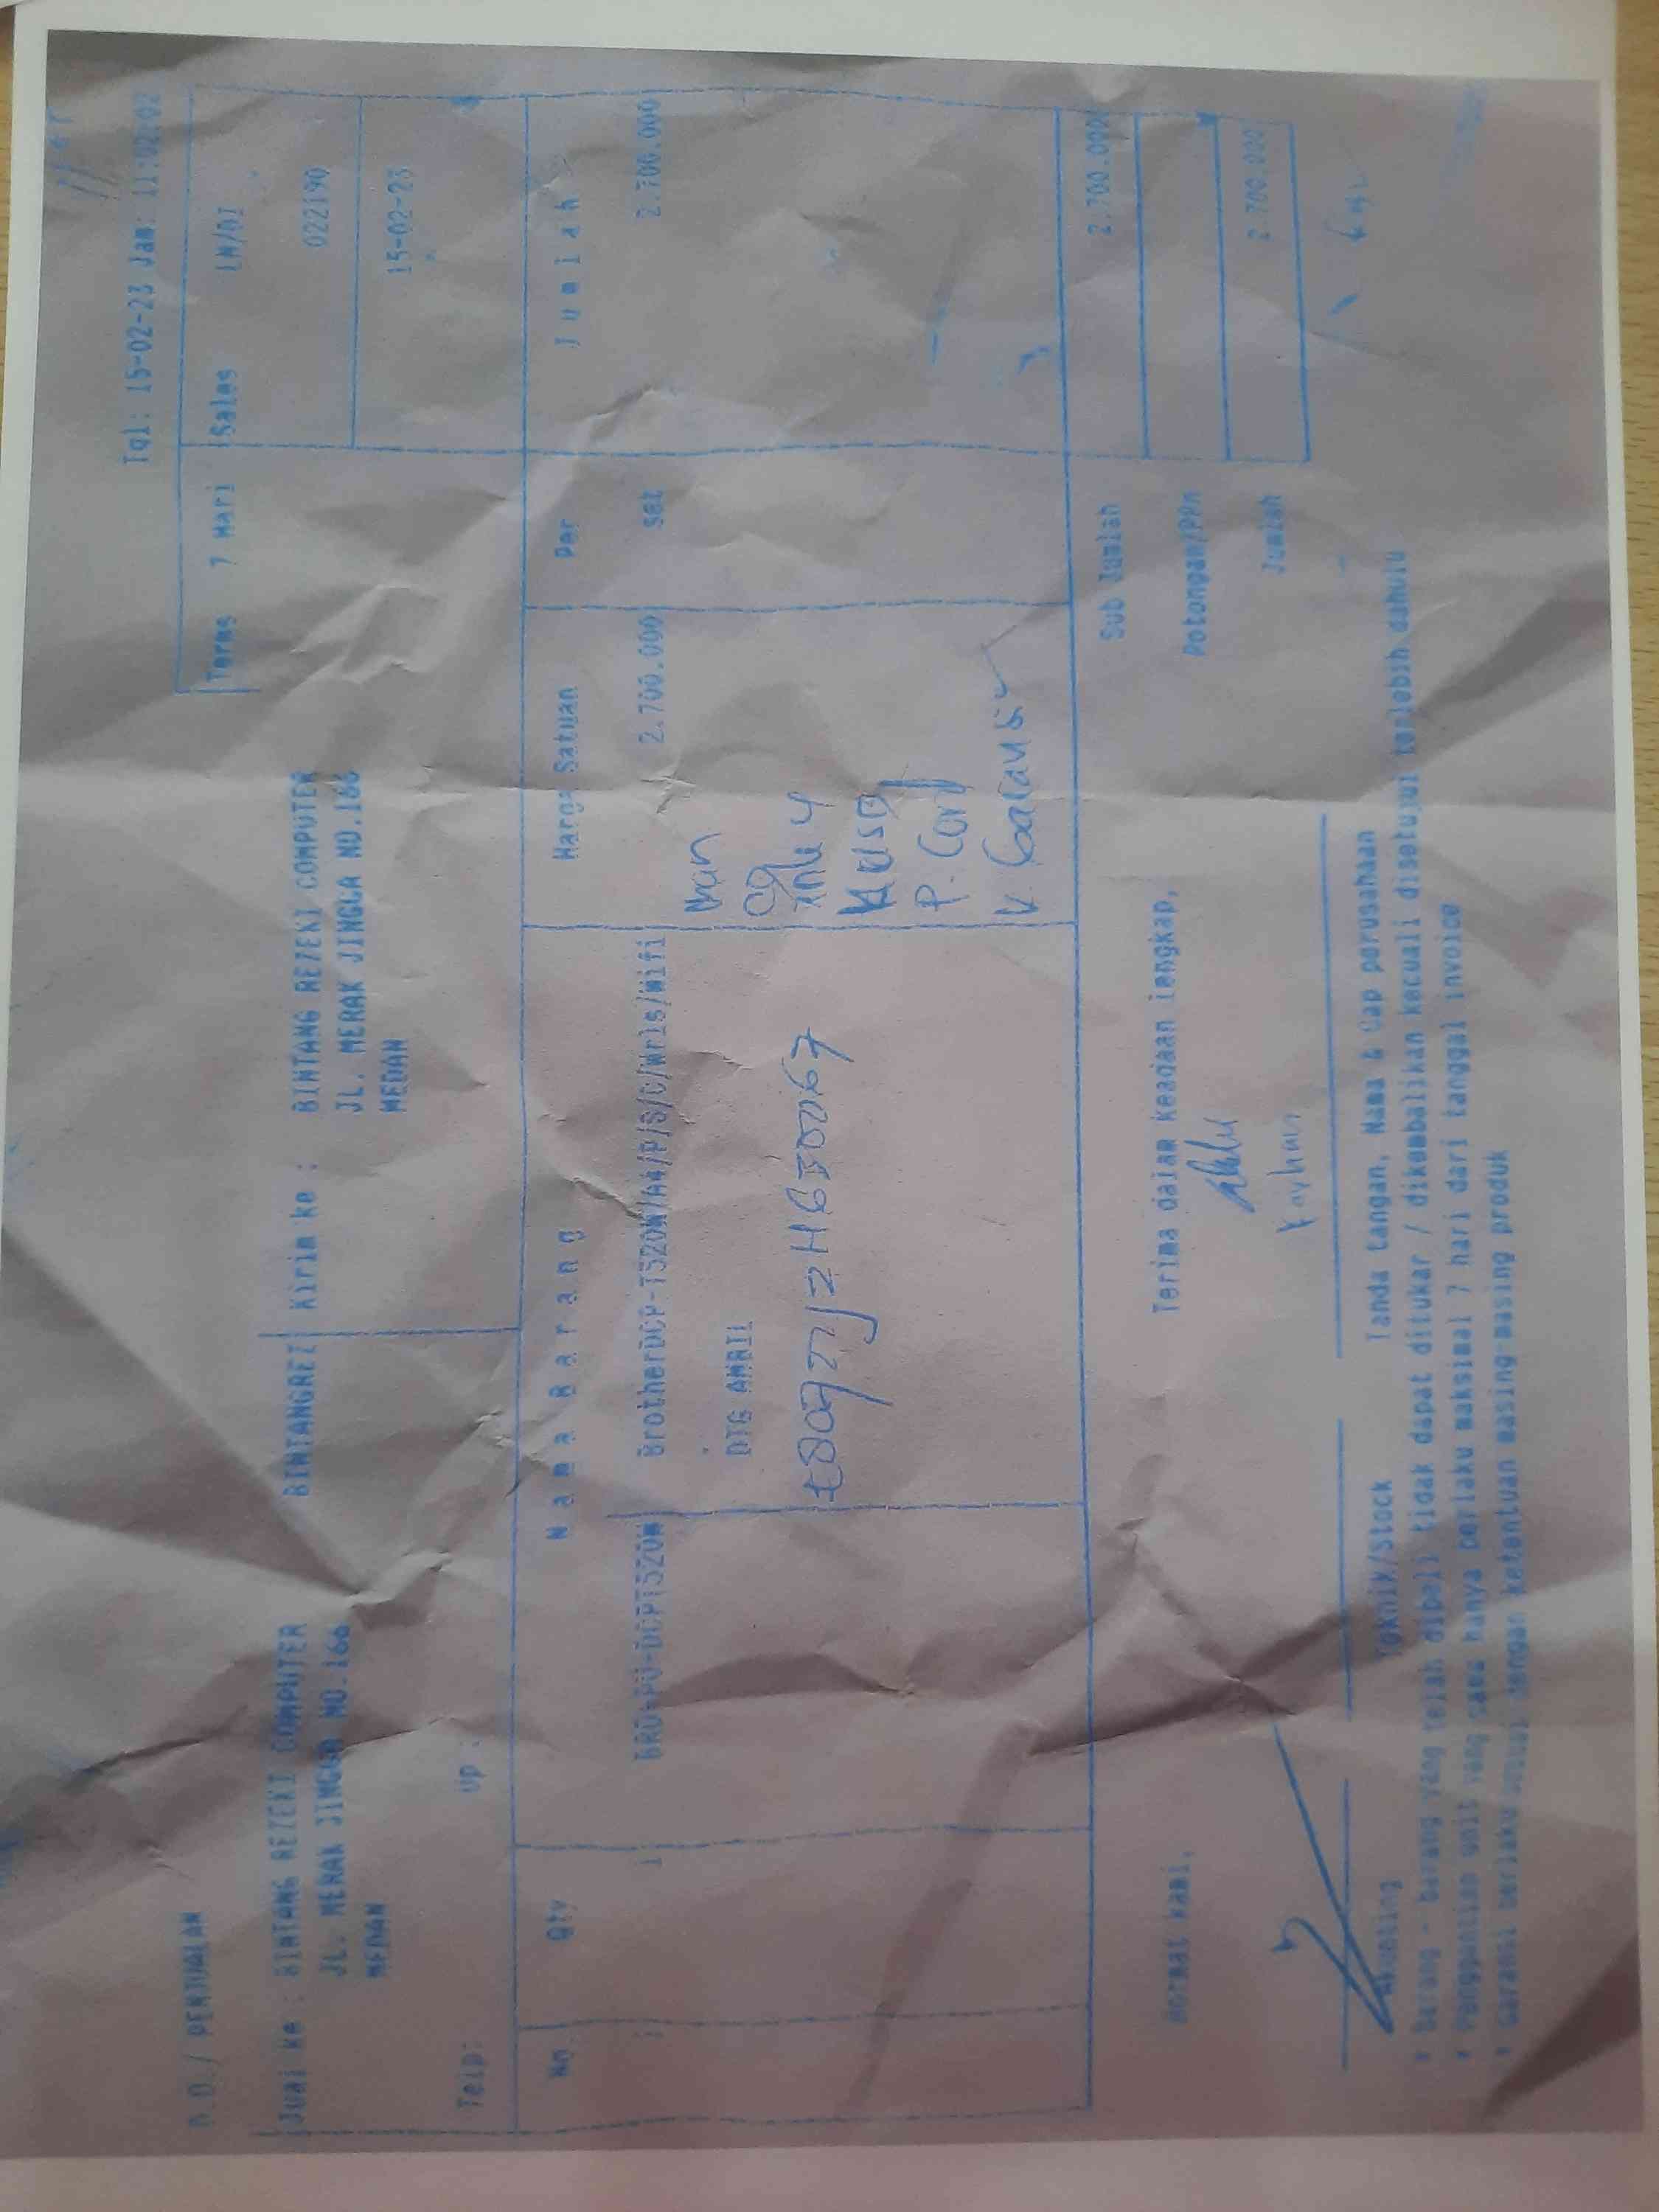 Tgl: 15-02-23 Jam: 11:02:02
D.O./ PENJUALAN
Terms 7 Hari Sales LM/DI
022190
15-02-23
Jual ke : BINTANG REZEKI COMPUTER BINTANGREZ Kirim ke : BINTANG REZEKI COMPUTER
JL. MERAK JINGGA NO.166 JL. MERAK JINGGA NO.166
MEDAN MEDAN
Telp: Up :
No Qty N a m a B a r a n g Harga Satuan Per J u m l a h
1 BRO-PU-DCPT520W BrotherDCP-T520W/A4/P/S/C/Wrls/Wifi 2.700.000 set 2.700.000
DTG AMBIL
P. Cord
K. Garansi
Sub Jumlah 2.700.000
Potongan/PPn
Jumlah 2.700.000
Hormat kami, Terima dalam keadaan lengkap,
Teknik/Stock Tanda tangan, Nama & Cap perusahaan
* Barang - barang yang telah dibeli tidak dapat ditukar / dikembalikan kecuali disetujui terlebih dahulu
* Penggantian unit yang sama hanya berlaku maksimal 7 hari dari tanggal invoice
* Garansi berlaku sesuai dengan ketentuan masing-masing produk